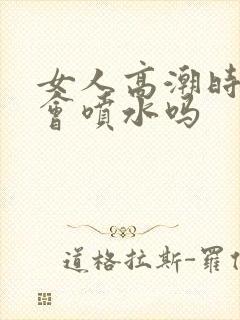 女人高潮时
會噴水吗
道格拉斯-羅